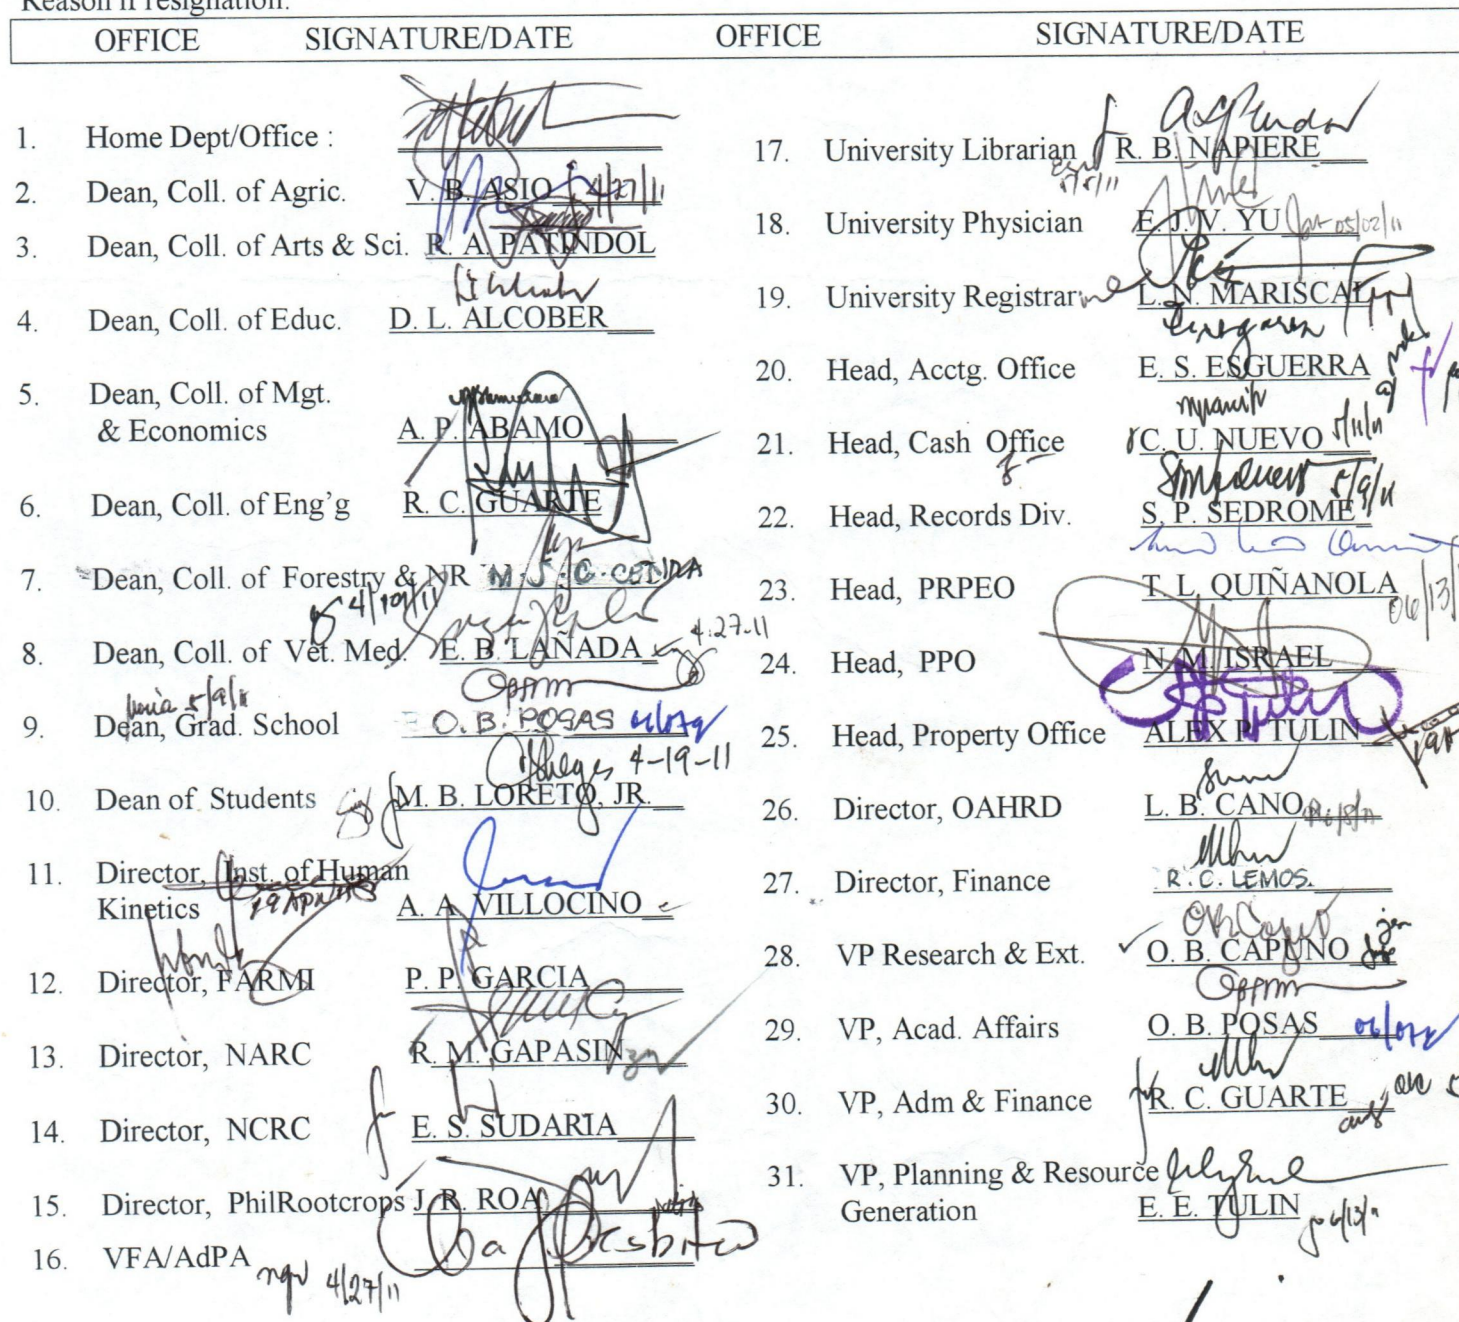 Reason if resignation:
OFFICE SIGNATURE/DATE OFFICE SIGNATURE/DATE
1. Home Dept/Office :
2. Dean, Coll. of Agric. V. B. ASIO 4/27/11
3. Dean, Coll. of Arts & Sci. R. A. PATINDOL
4. Dean, Coll. of Educ. D. L. ALCOBER
5. Dean, Coll. of Mgt.
& Economics A. P. ABAMO
6. Dean, Coll. of Eng'g R. C. GUARTE
7. Dean, Coll. of Forestry & NR M. J. C.
8. Dean, Coll. of Vet. Med. E. B. LAÑADA 4-27-11
5/9/11
9. Dean, Grad. School O. B. POSAS
4-19-11
10. Dean of Students M. B. LORETO, JR.
11. Director, Inst. of Human
Kinetics A. A. VILLOCINO
12. Director, FARMI P. P. GARCIA
13. Director, NARC R. M. GAPASIN
14. Director, NCRC E. S. SUDARIA
15. Director, PhilRootcrops J. R. ROA
16. VFA/AdPA
4/27/11
17. University Librarian R. B. NAPIERE
5/5/11
18. University Physician E. J. V. YU 05/02/11
19. University Registrar L. N. MARISCAL
20. Head, Acctg. Office E. S. ESGUERRA
21. Head, Cash Office C. U. NUEVO 5/11/11
5/9/11
22. Head, Records Div. S. P. SEDROME
23. Head, PRPEO T. L. QUIÑANOLA
06/13/
24. Head, PPO N. M. ISRAEL
25. Head, Property Office ALEX P. TULIN
26. Director, OAHRD L. B. CANO
27. Director, Finance R. C. LEMOS.
28. VP Research & Ext. O. B. CAPUNO
29. VP, Acad. Affairs O. B. POSAS
30. VP, Adm & Finance R. C. GUARTE
31. VP, Planning & Resource
Generation E. E. TULIN